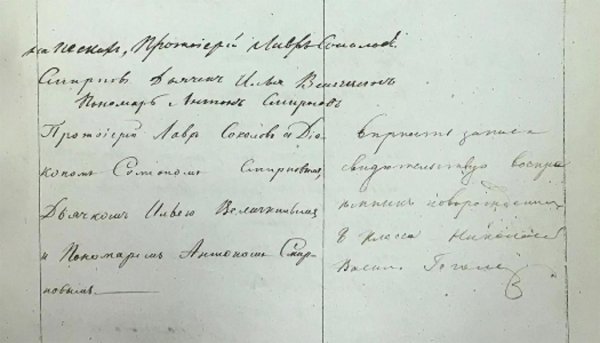 на Пескахъ, Протоіерей Лавръ Соколовъ
Смирновъ Дьячекъ Илья
Пономарь Антонъ Смирновъ
Протоіерей Лавръ Соколовъ съ Діа-
кономъ Симіономъ Смирновымъ,
Дьячкомъ Ильею Величкинымъ
и Пономаремъ Антономъ Смир-
новымъ.
Верность записи
свидетельствую воспри-
емникъ новорожденнаго
8 класса Николай
Василь. Гоголь